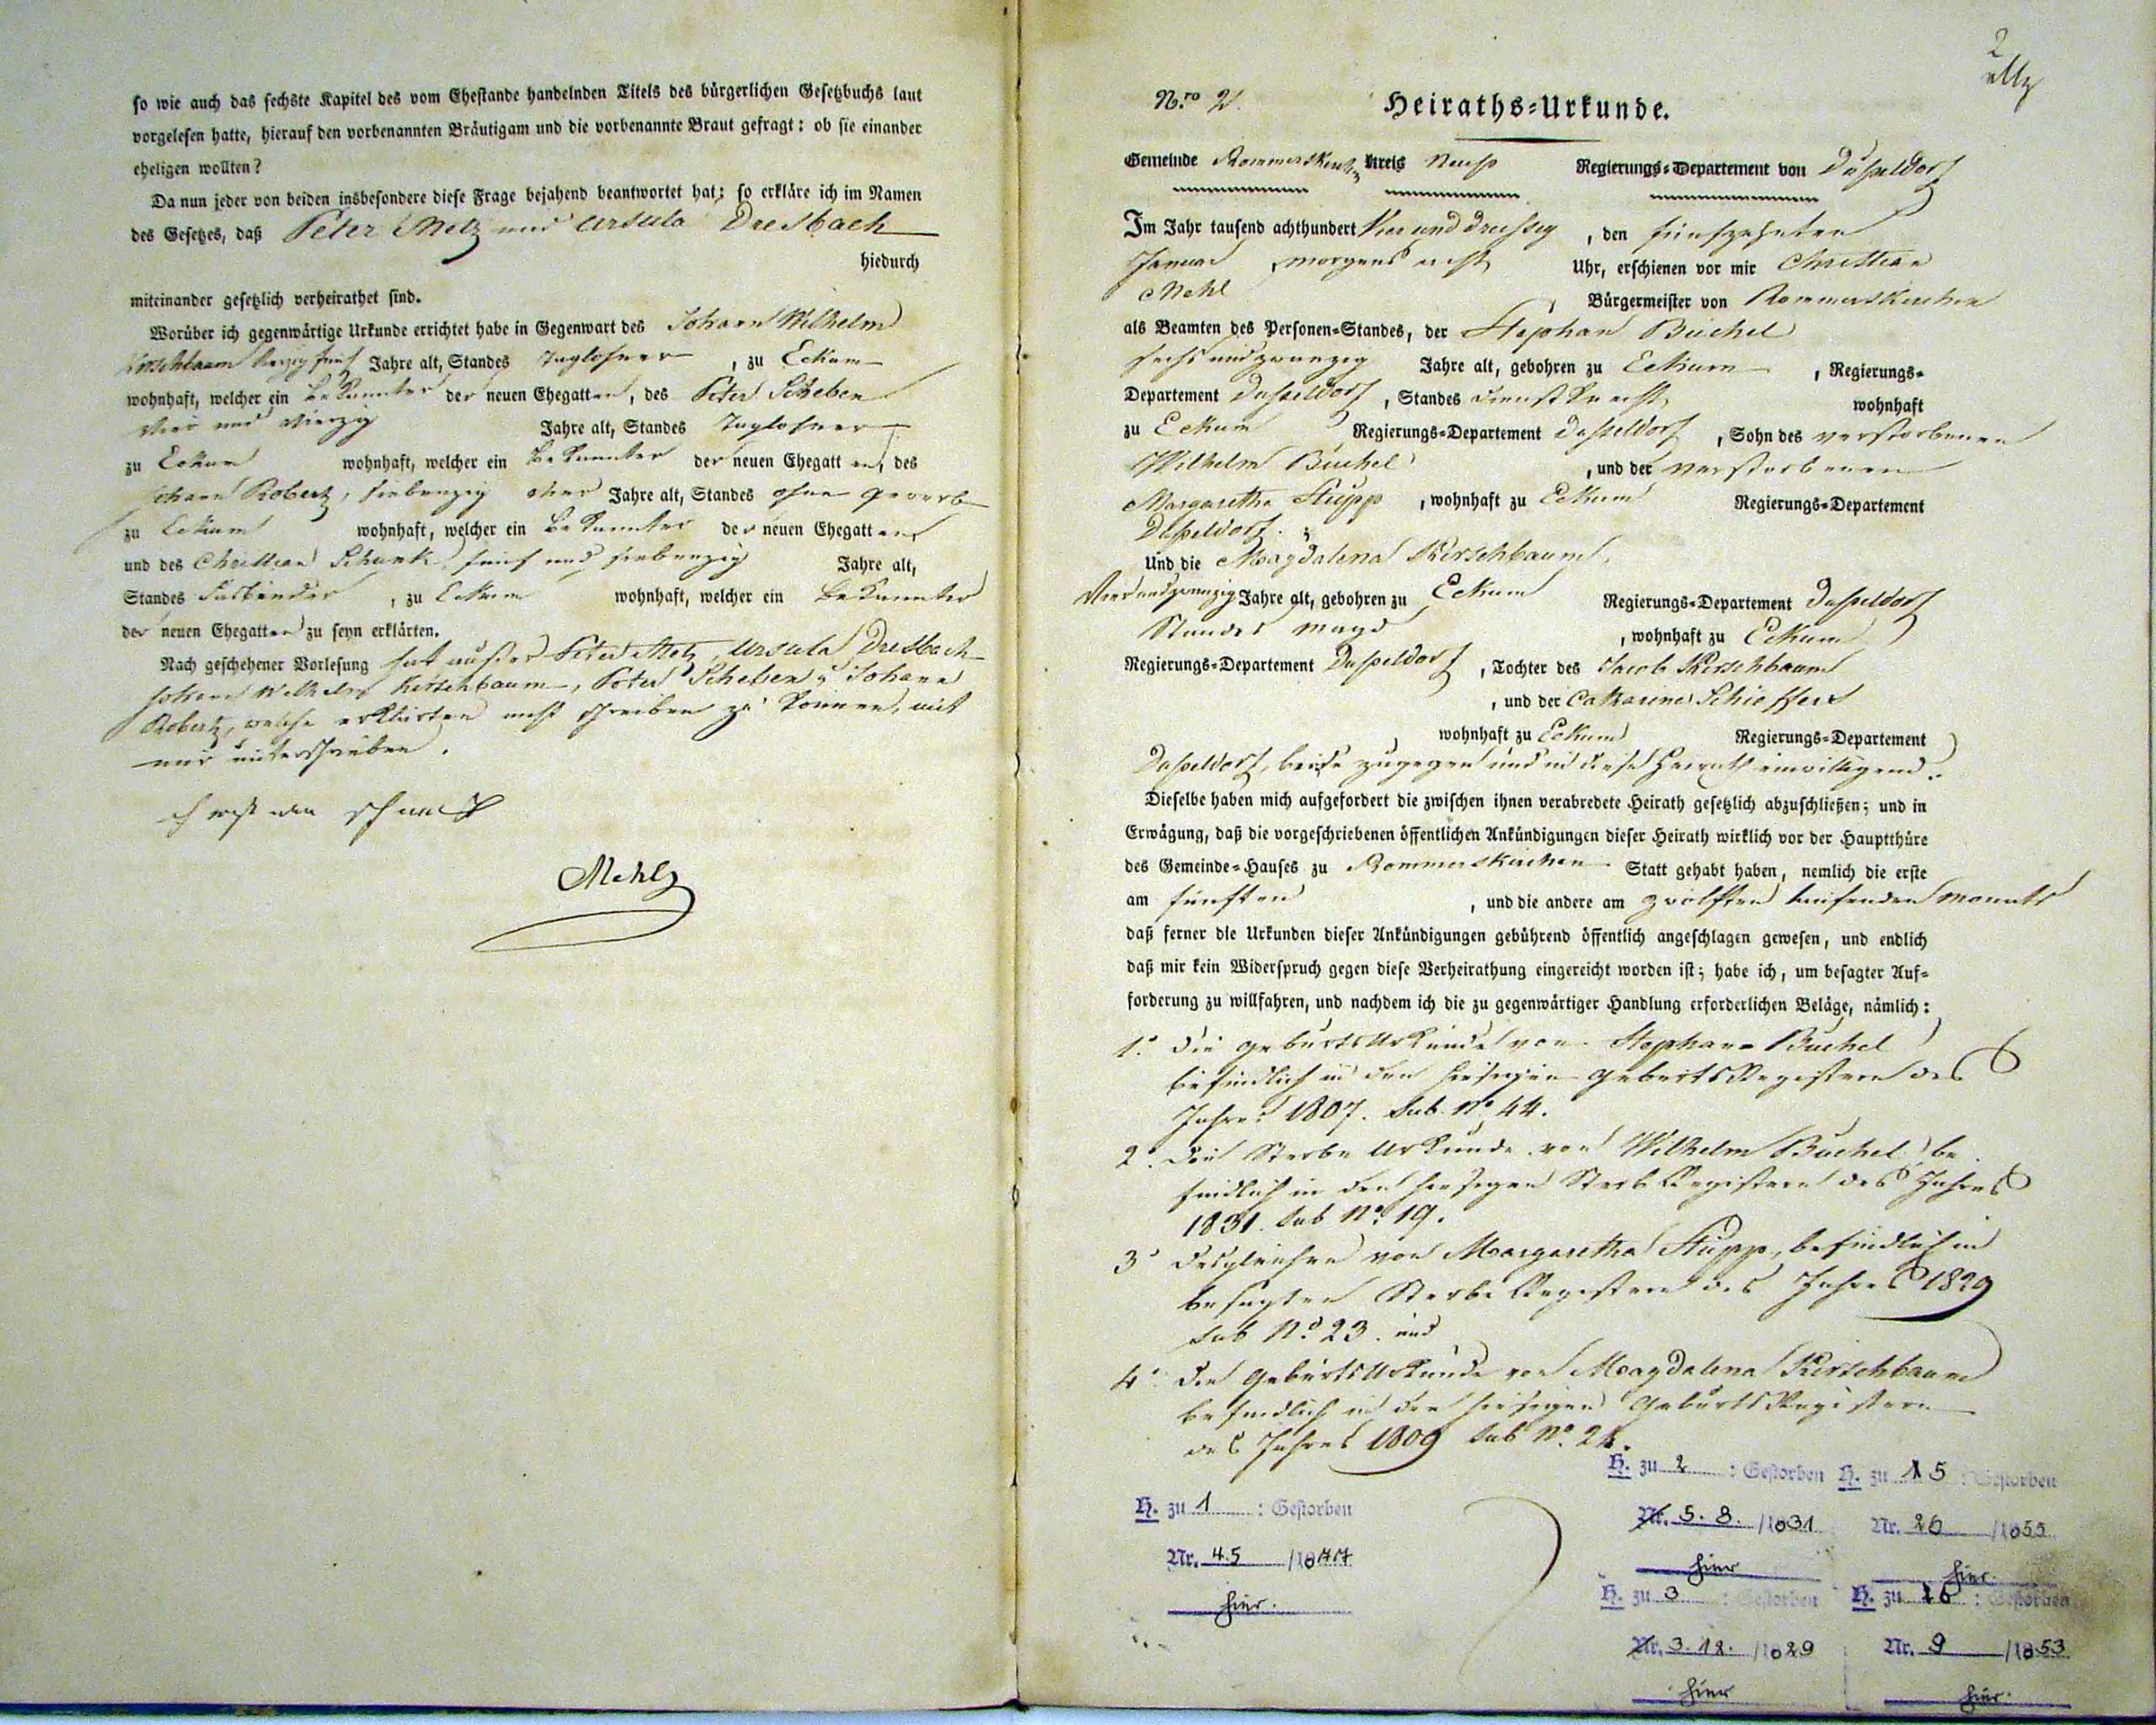 so wie auch das sechste Kapitel des vom Ehestande handelnden Titels des bürgerlichen Gesetzbuchs laut
vorgelesen hatte, hierauf den vorbenannten Bräutigam und die vorbenannte Braut gefragt: ob sie einander
eheligen wollten?
Da nun jeder von beiden insbesondere diese Frage bejahend beantwortet hat; so erkläre ich im Namen
des Gesetzes, daß Peter Metz und Ursula Dresbach
hiedurch
miteinander gesetzlich verheirathet sind.
Worüber ich gegenwärtige Urkunde errichtet habe in Gegenwart des Johann Wilhelm
Kirschbaum Jahre alt, Standes Taglohner, zu Eckum
wohnhaft, welcher ein Bekannter der neuen Ehegatten, des Peter Scheben
vier und vierzig Jahre alt, Standes Taglohner
zu Eckum wohnhaft, welcher ein Bekannter der neuen Ehegatten, des
Johann Robertz, siebenzig vier Jahre alt, Standes ohne Gewerb
zu Eckum wohnhaft, welcher ein Bekannter der neuen Ehegatten
und des Christian Schunk fünf und siebenzig Jahre alt,
Standes Faßbinder, zu Eckum wohnhaft, welcher ein Bekannter
der neuen Ehegatten zu seyn erklärten.
Nach geschehener Vorlesung hat außer Peter Metz, Ursula Dresbach
Johann Wilhelm Kirschbaum, Peter Scheben u Johann
Robertz, welche erklärten nicht schreiben zu können, mit
mir unterschrieben.
Mehl
2
Nro 2.
Heiraths-Urkunde.
Gemeinde Rommerskirchen Kreis Neuß Regierungs-Departement von Düsseldorf
Im Jahr tausend achthundert Vier und dreissig, den fünfzehnten
Januar, morgens acht Uhr, erschienen vor mir Christian
Mehl Bürgermeister von Rommerskirchen
als Beamten des Personen-Standes, der Stephan Büchel
sechs und zwanzig Jahre alt, gebohren zu Eckum, Regierungs-
Departement Düsseldorf, Standes Dienstknecht wohnhaft
zu Eckum Regierungs-Departement Düsseldorf, Sohn des verstorbenen
Wilhelm Büchel, und der verstorbenen
Margaretha Stupp, wohnhaft zu Eckum Regierungs-Departement
Düsseldorf.
Und die Magdalena Kirschbaum,
Vier und zwanzig Jahre alt, gebohren zu Eckum Regierungs-Departement Düsseldorf
Standes Magd, wohnhaft zu Eckum
Regierungs-Departement Düsseldorf, Tochter des Jacob Kirschbaum
, und der Catharina Schieffers
wohnhaft zu Eckum Regierungs-Departement
Düsseldorf, beide zugegen und in diese Heirath einwilligend.
Dieselbe haben mich aufgefordert die zwischen ihnen verabredete Heirath gesetzlich abzuschließen; und in
Erwägung, daß die vorgeschriebenen öffentlichen Ankündigungen dieser Heirath wirklich vor der Hauptthüre
des Gemeinde-Hauses zu Rommerskirchen Statt gehabt haben, nemlich die erste
am fünften, und die andere am zwölften laufenden Monats
daß ferner die Urkunden dieser Ankündigungen gebührend öffentlich angeschlagen gewesen, und endlich
daß mir kein Widerspruch gegen diese Verheirathung eingereicht worden ist; habe ich, um besagter Auf-
forderung zu willfahren, und nachdem ich die zu gegenwärtiger Handlung erforderlichen Beläge, nämlich:
1. Die Geburts Urkunde von Stephan Büchel
befindlich in den hiesigen Geburts Registern des
Jahres 1807. Sub No 44.
2. Die Sterbe Urkunde von Wilhelm Büchel, be
findlich in den hiesigen Sterb Registern des Jahres
1831. Sub No 19.
3. Desgleichen von Margaretha Stupp, befindlich in
besagten Sterbe Registern des Jahres 1829
Sub No 23. und
4. Die Geburts Urkunde von Magdalena Kirschbaum
befindlich in den hiesigen Geburts Registern
des Jahres 1809 Sub No 24.
H. zu 1 : Gestorben
Nr. 45 /1877
hier.
H. zu 2 : Gestorben
Nr. 5. 8. /1831
hier
H. zu 15 : Gestorben
Nr. 26 /1855
hier.
H. zu 3 : Gestorben
Nr. 3. 12. /1829
hier
H. zu 16 : Gestorben
Nr. 9 /1853
hier.